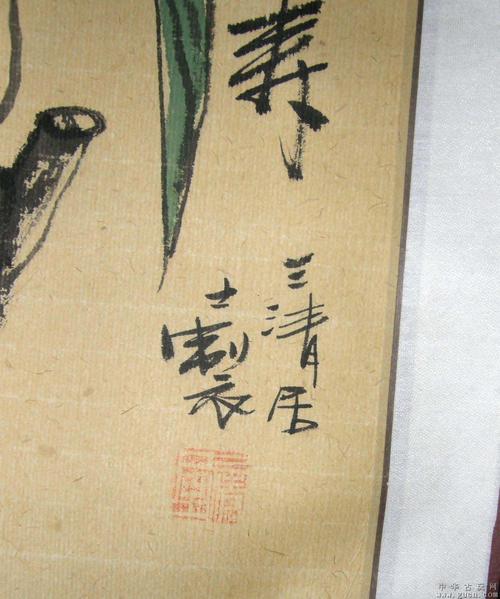 寿
三清居
士製
中华古玩网
www.gucn.com